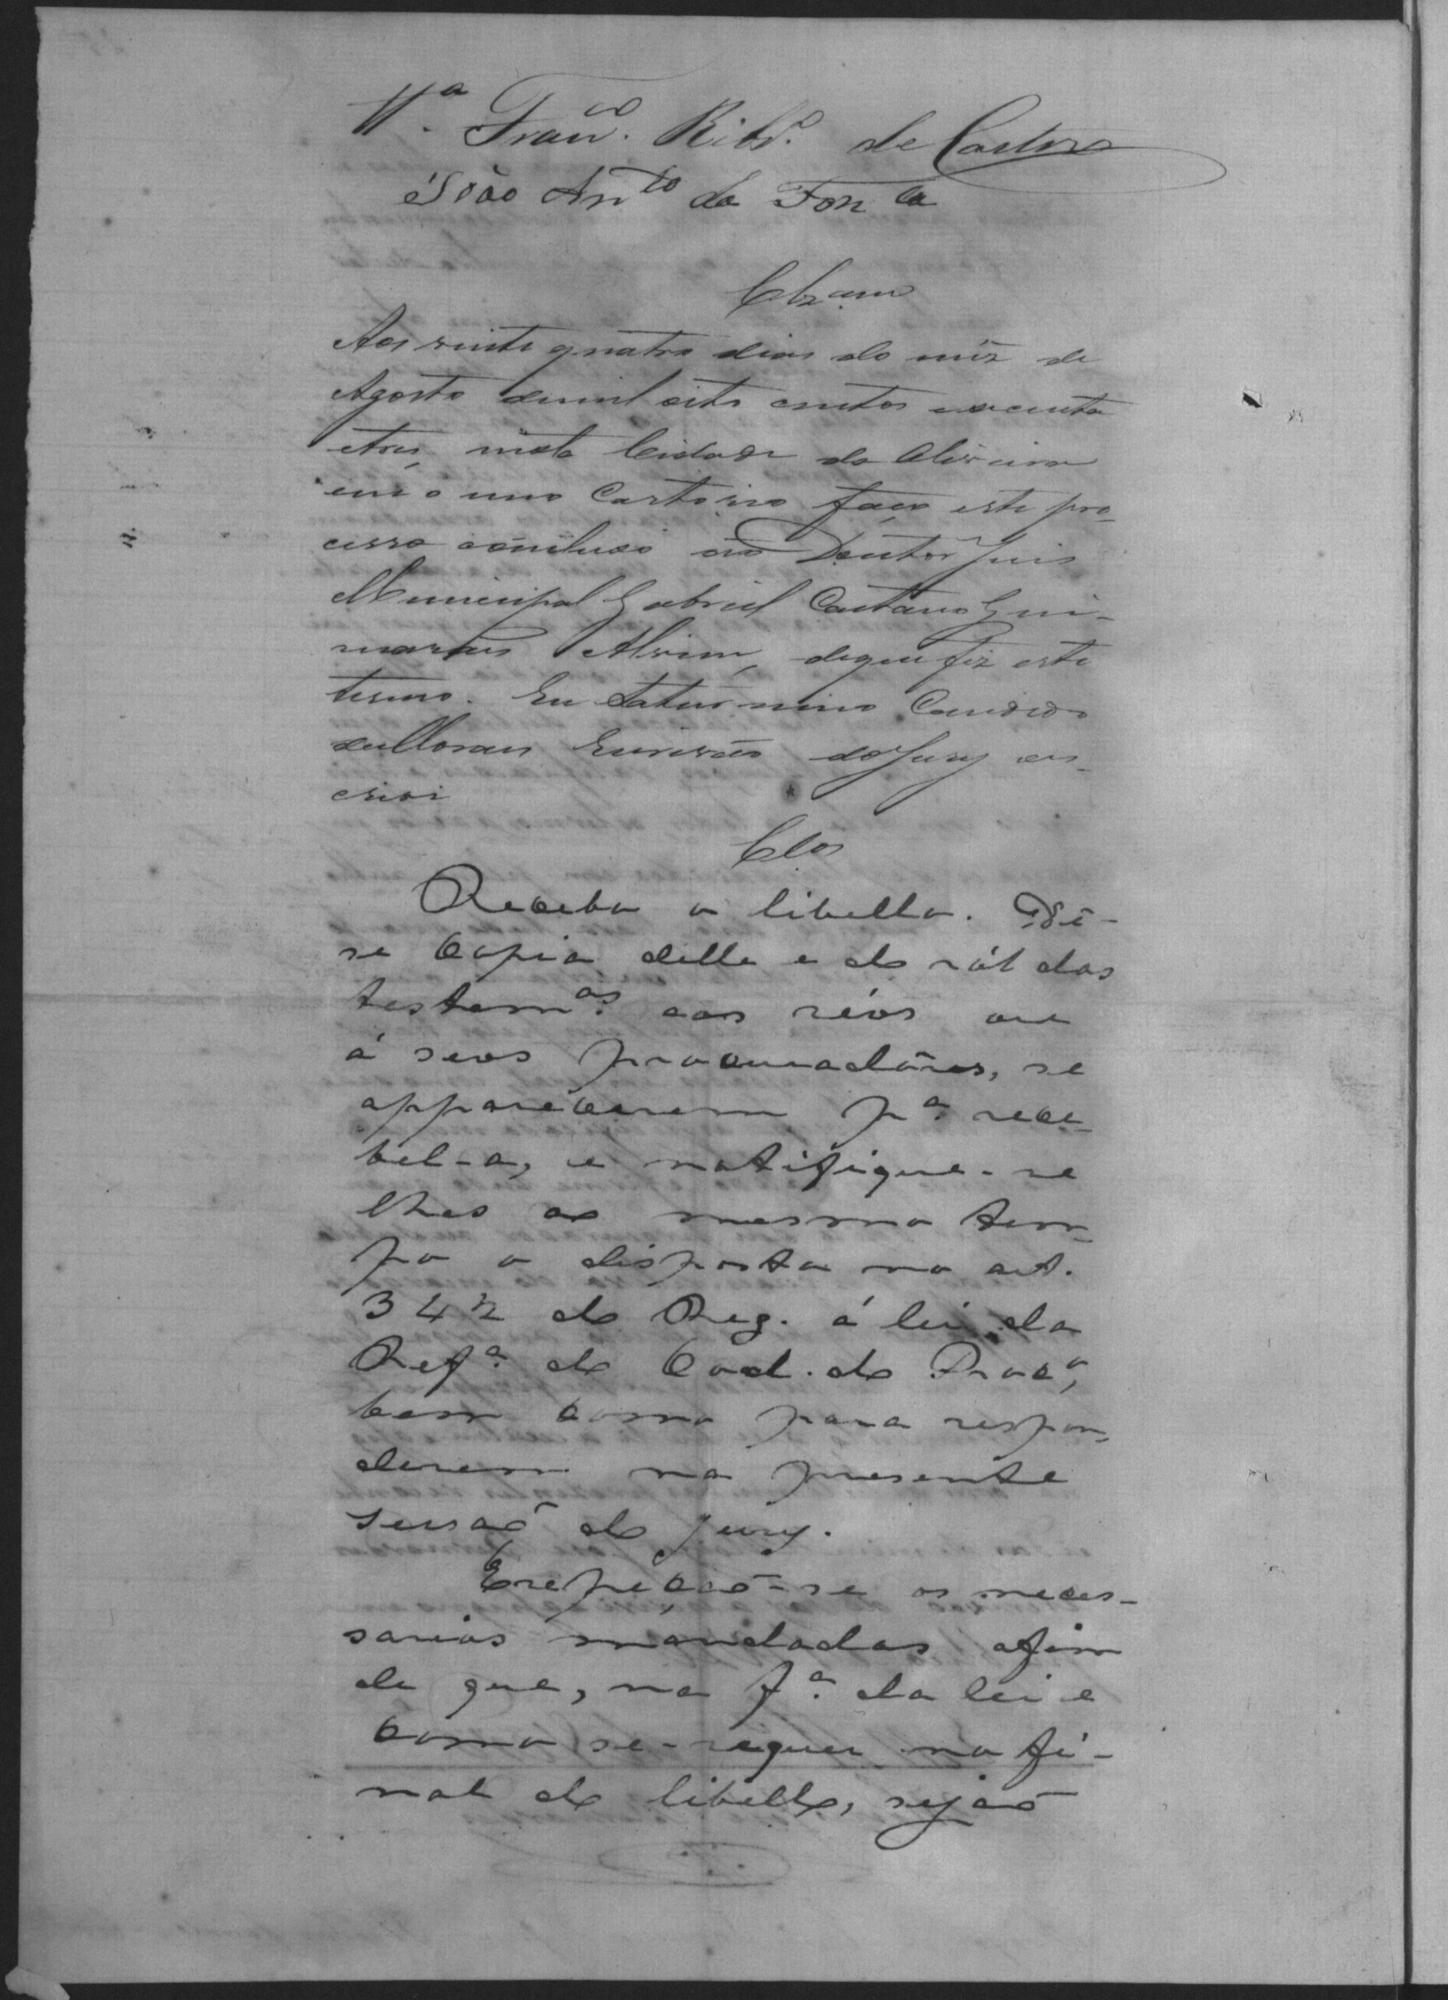 11.ª Fran.co Ribr.o de Castro
João An.to da Fon.ca
Clzam
Aos vinte quatro dias do mêz de
Agosto demil oito centos esecenta
etres, nésta Cidade da Oliveira
em o meo Cartorio faço este pro-
cesso concluso ao Doutor Juis
Municipal Gabriel Caetano Gui-
marães Alvim, deque fiz este
termo. Eu Saturnino Candido
deMoraes Escrivão doJury es-
crivi
Clos
Recebo o libello. Dê-
se copia delle e do ról das
testem.as aos réos ou
á seos procuradôres, se
apparecerem p.a rece-
bel-a, e notifique-se
lhes ao mesmo tem-
po o disposto no art.
342 do Reg. á lei da
Ref.a do Cod. do Proc.o,
bem como para respon-
derem na presente
sessaõ do jury.
Expeçaõ-se os neces-
sarios mandados afim
de que, na f.a da lei e
como se-requer no fi-
nal do libello, sejaõ